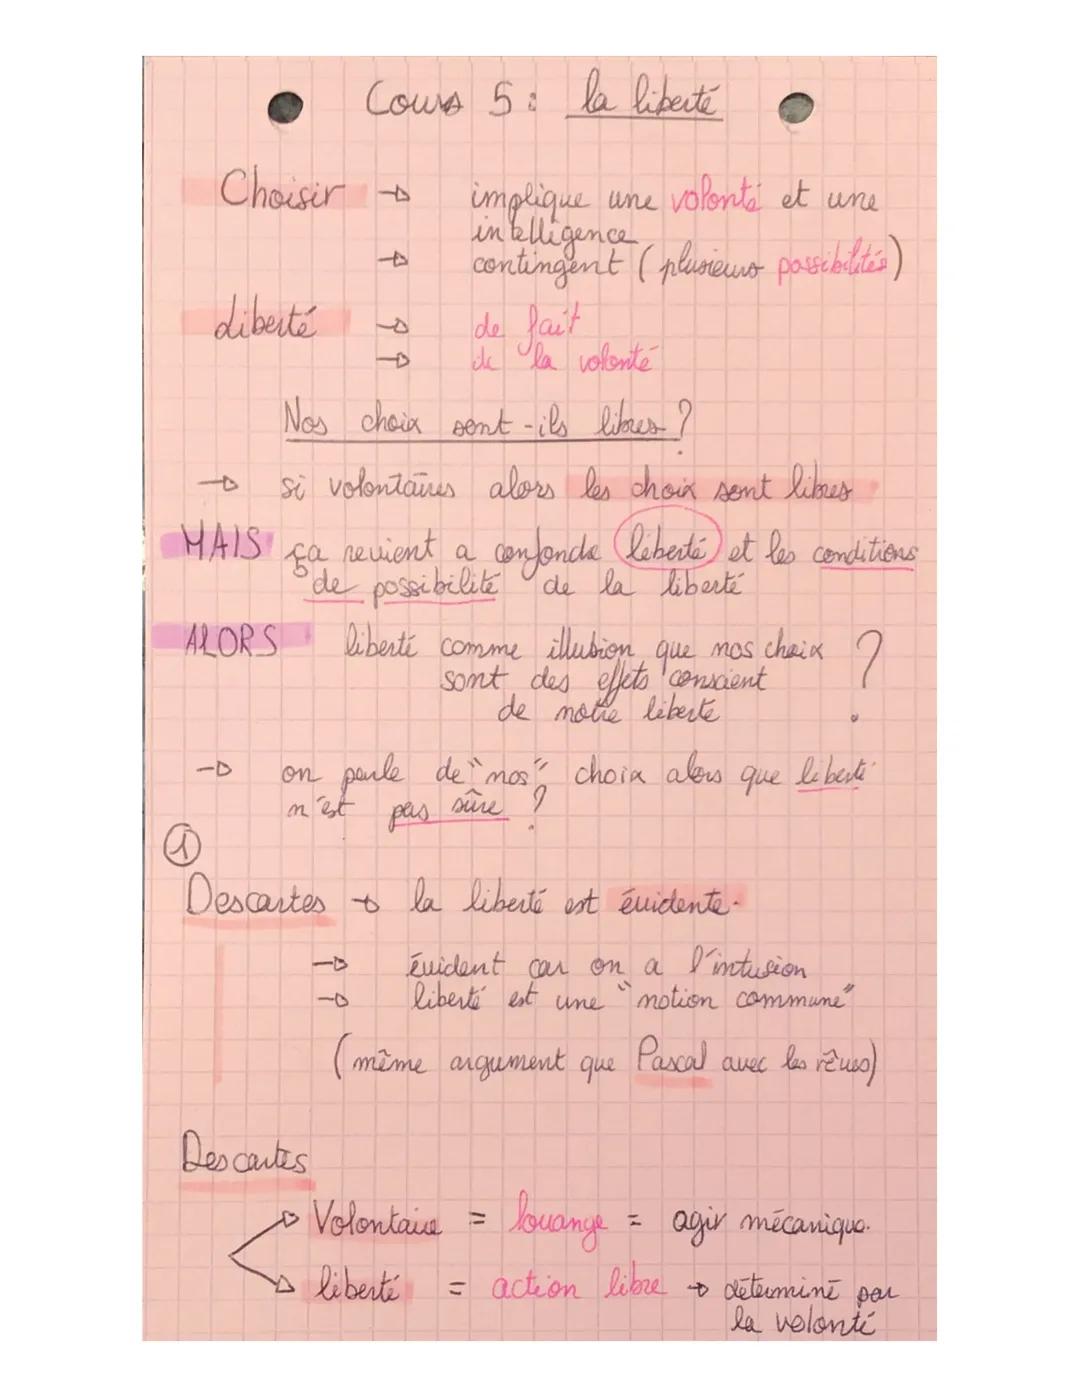 Cours 5 : la liberté
Choisir → implique une volonté et une
intelligence
→ contingent (plusieurs possibilités)
Liberté → de fait
→ de la volonté
Nos choix sont-ils libres ?
→ si volontaires alors les choix sont libres
MAIS ça revient a confondre liberté et les conditions
de possibilité de la liberté
ALORS liberté comme illusion que nos choix
sont des effets conscient
de notre liberté ?
→ on parle de "nos" choix alors que liberté
n'est pas sûre ?
①
Descartes → la liberté est évidente.
→ évident car on a l'intusion
→ liberté est une "notion commune"
(même argument que Pascal avec les rêves)
Descartes
→ Volontaire = louange = agir mécanique.
→ liberté = action libre → déterminé par
la volonté